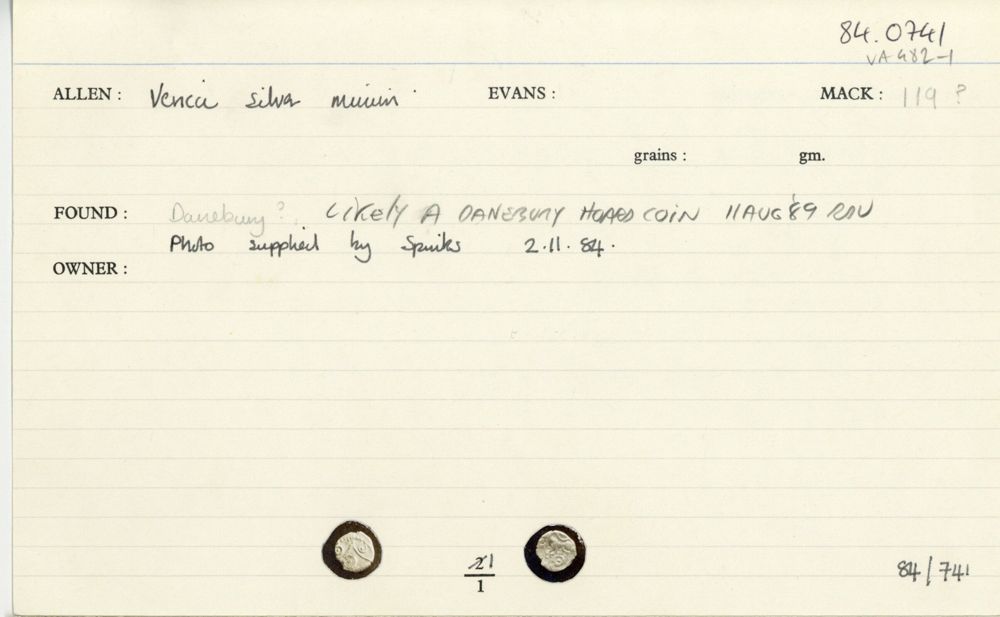 84.0741
VA 482-1
ALLEN : Verica silver minim EVANS : MACK : 119 ?
grains : gm.
FOUND : Danebury? LIKELY A DANEBURY HOARD COIN 11 AUG '89 RDV
Photo supplied by Spinks 2.11.84.
OWNER :
1
1
84/741